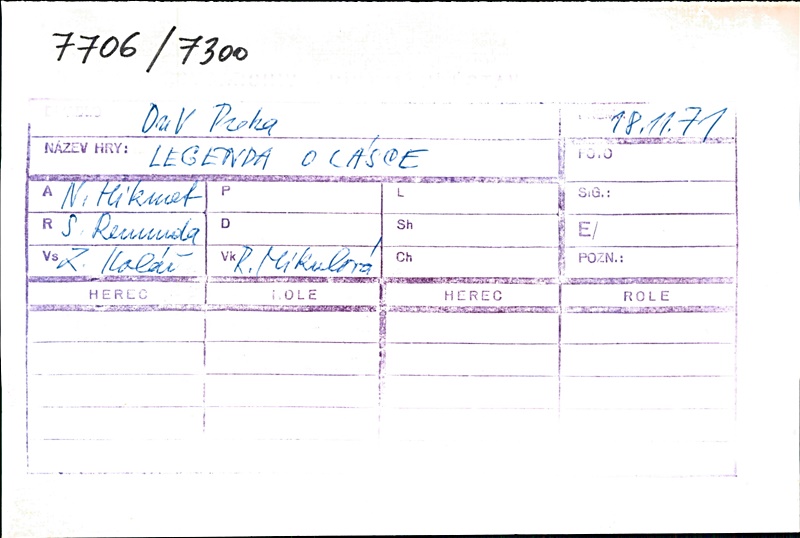 7706/7300
DnV Praha 18.11.71
NÁZEV HRY: LEGENDA O LÁSCE FOTO
A N. Hikmet P L SIG.:
R S. Remunda D Sh E/
Vs Z. Kolář Vk R. Mikulová Ch POZN.:
HEREC ROLE HEREC ROLE